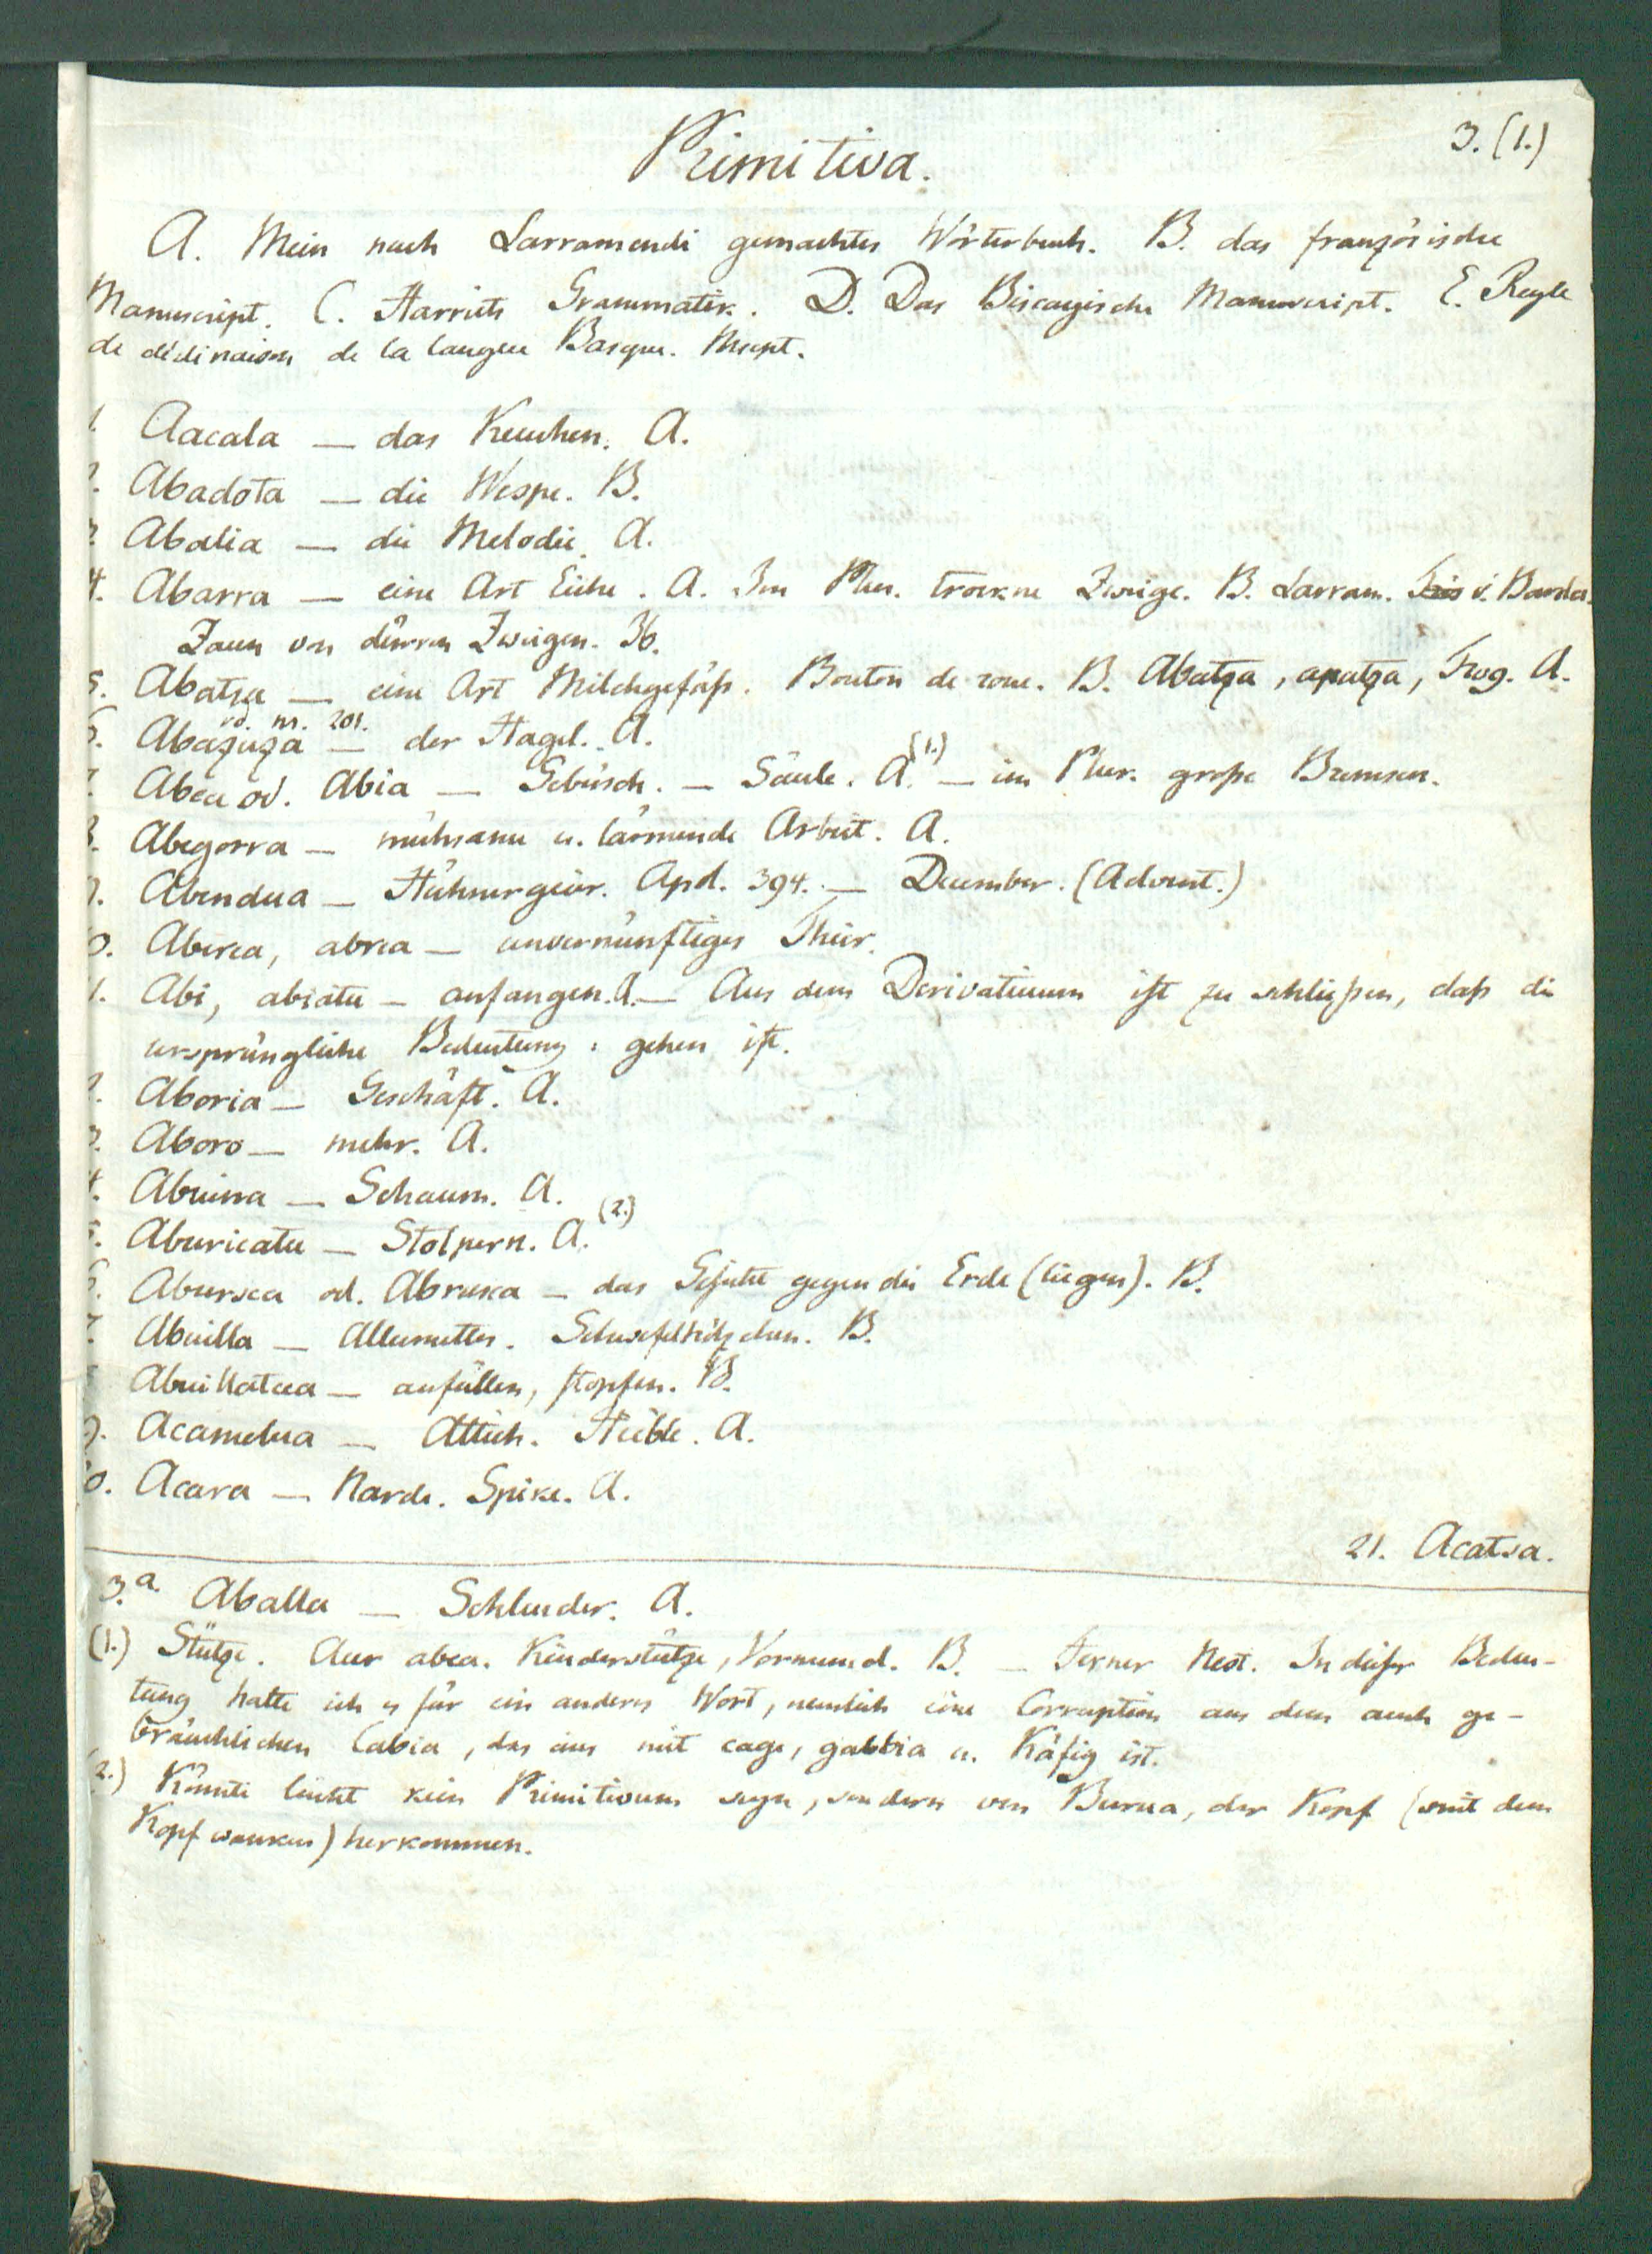 3. (1.)
Primitiva.
A. Mein nach Larramendi gemachtes Wörterbuch. B. das französische
Manuscript. C. Harriets Grammatik. D. Das Biscayische Manuscript. E. Regle
de déclinaison de la langue Basque. Mscpt.
1. Aacala — das Keuchen. A.
2. Abadota — die Wespe. B.
3. Abalia — die Melodie. A.
4. Abarra — eine Art Eiche. A. Im Plur. trockne Zweige. B. Larram. v.
Zaun von dürren Zweigen. 36.
5. Abatsa — eine Art Milchgefäß. Bouton de roue. B. Abatza, apatza, Trog. A.
vd. nr. 201.
6. Abazuza — der Hagel. A.
7. Abea od. Abia — Gebüsch. — Säule. A. (1.) — im Plur. große Bremsen.
8. Abegorra — mühsame u. lärmende Arbeit. A.
9. Abendua — Hühnergeier. Apd. 394. — December. (Advent.)
10. Aberea, abrea — unvernünftiges Thier.
11. Abi, abiatu — anfangen. A. — Aus dem Derivativum ist zu schließen, daß die
ursprüngliche Bedeutung: gehen ist.
12. Aboria — Geschäft. A.
13. Aboro — mehr. A.
14. Abuirra — Schaum. A.
15. Aburicatu — Stolpern. A. (2.)
16. Abursca od. Abrusca — das Gesicht gegen die Erde (liegen). B.
17. Abuilla — Allumettes. Schwefelhölzchen. B.
Abuillatcea — anfüllen, stopfen. B.
19. Acamelua — Attich. Hieble. A.
20. Acara — Narde. Spike. A.
21. Acatsa.
3.a. Aballa — Schleuder. A.
(1.) Stütze. Aur abea. Kinderstütze, Vormund. B. — Ferner Nest. In dieser Bedeu-
tung halte ich es für ein anderes Wort, nemlich eine Corruption aus dem auch ge-
bräuchlichen Cabia, das eins mit cage, gabbia u. Käfig ist.
(2.) Könnte leicht kein Primitivum seyn, sondern von Burua, der Kopf (mit dem
Kopf wanken) herkommen.